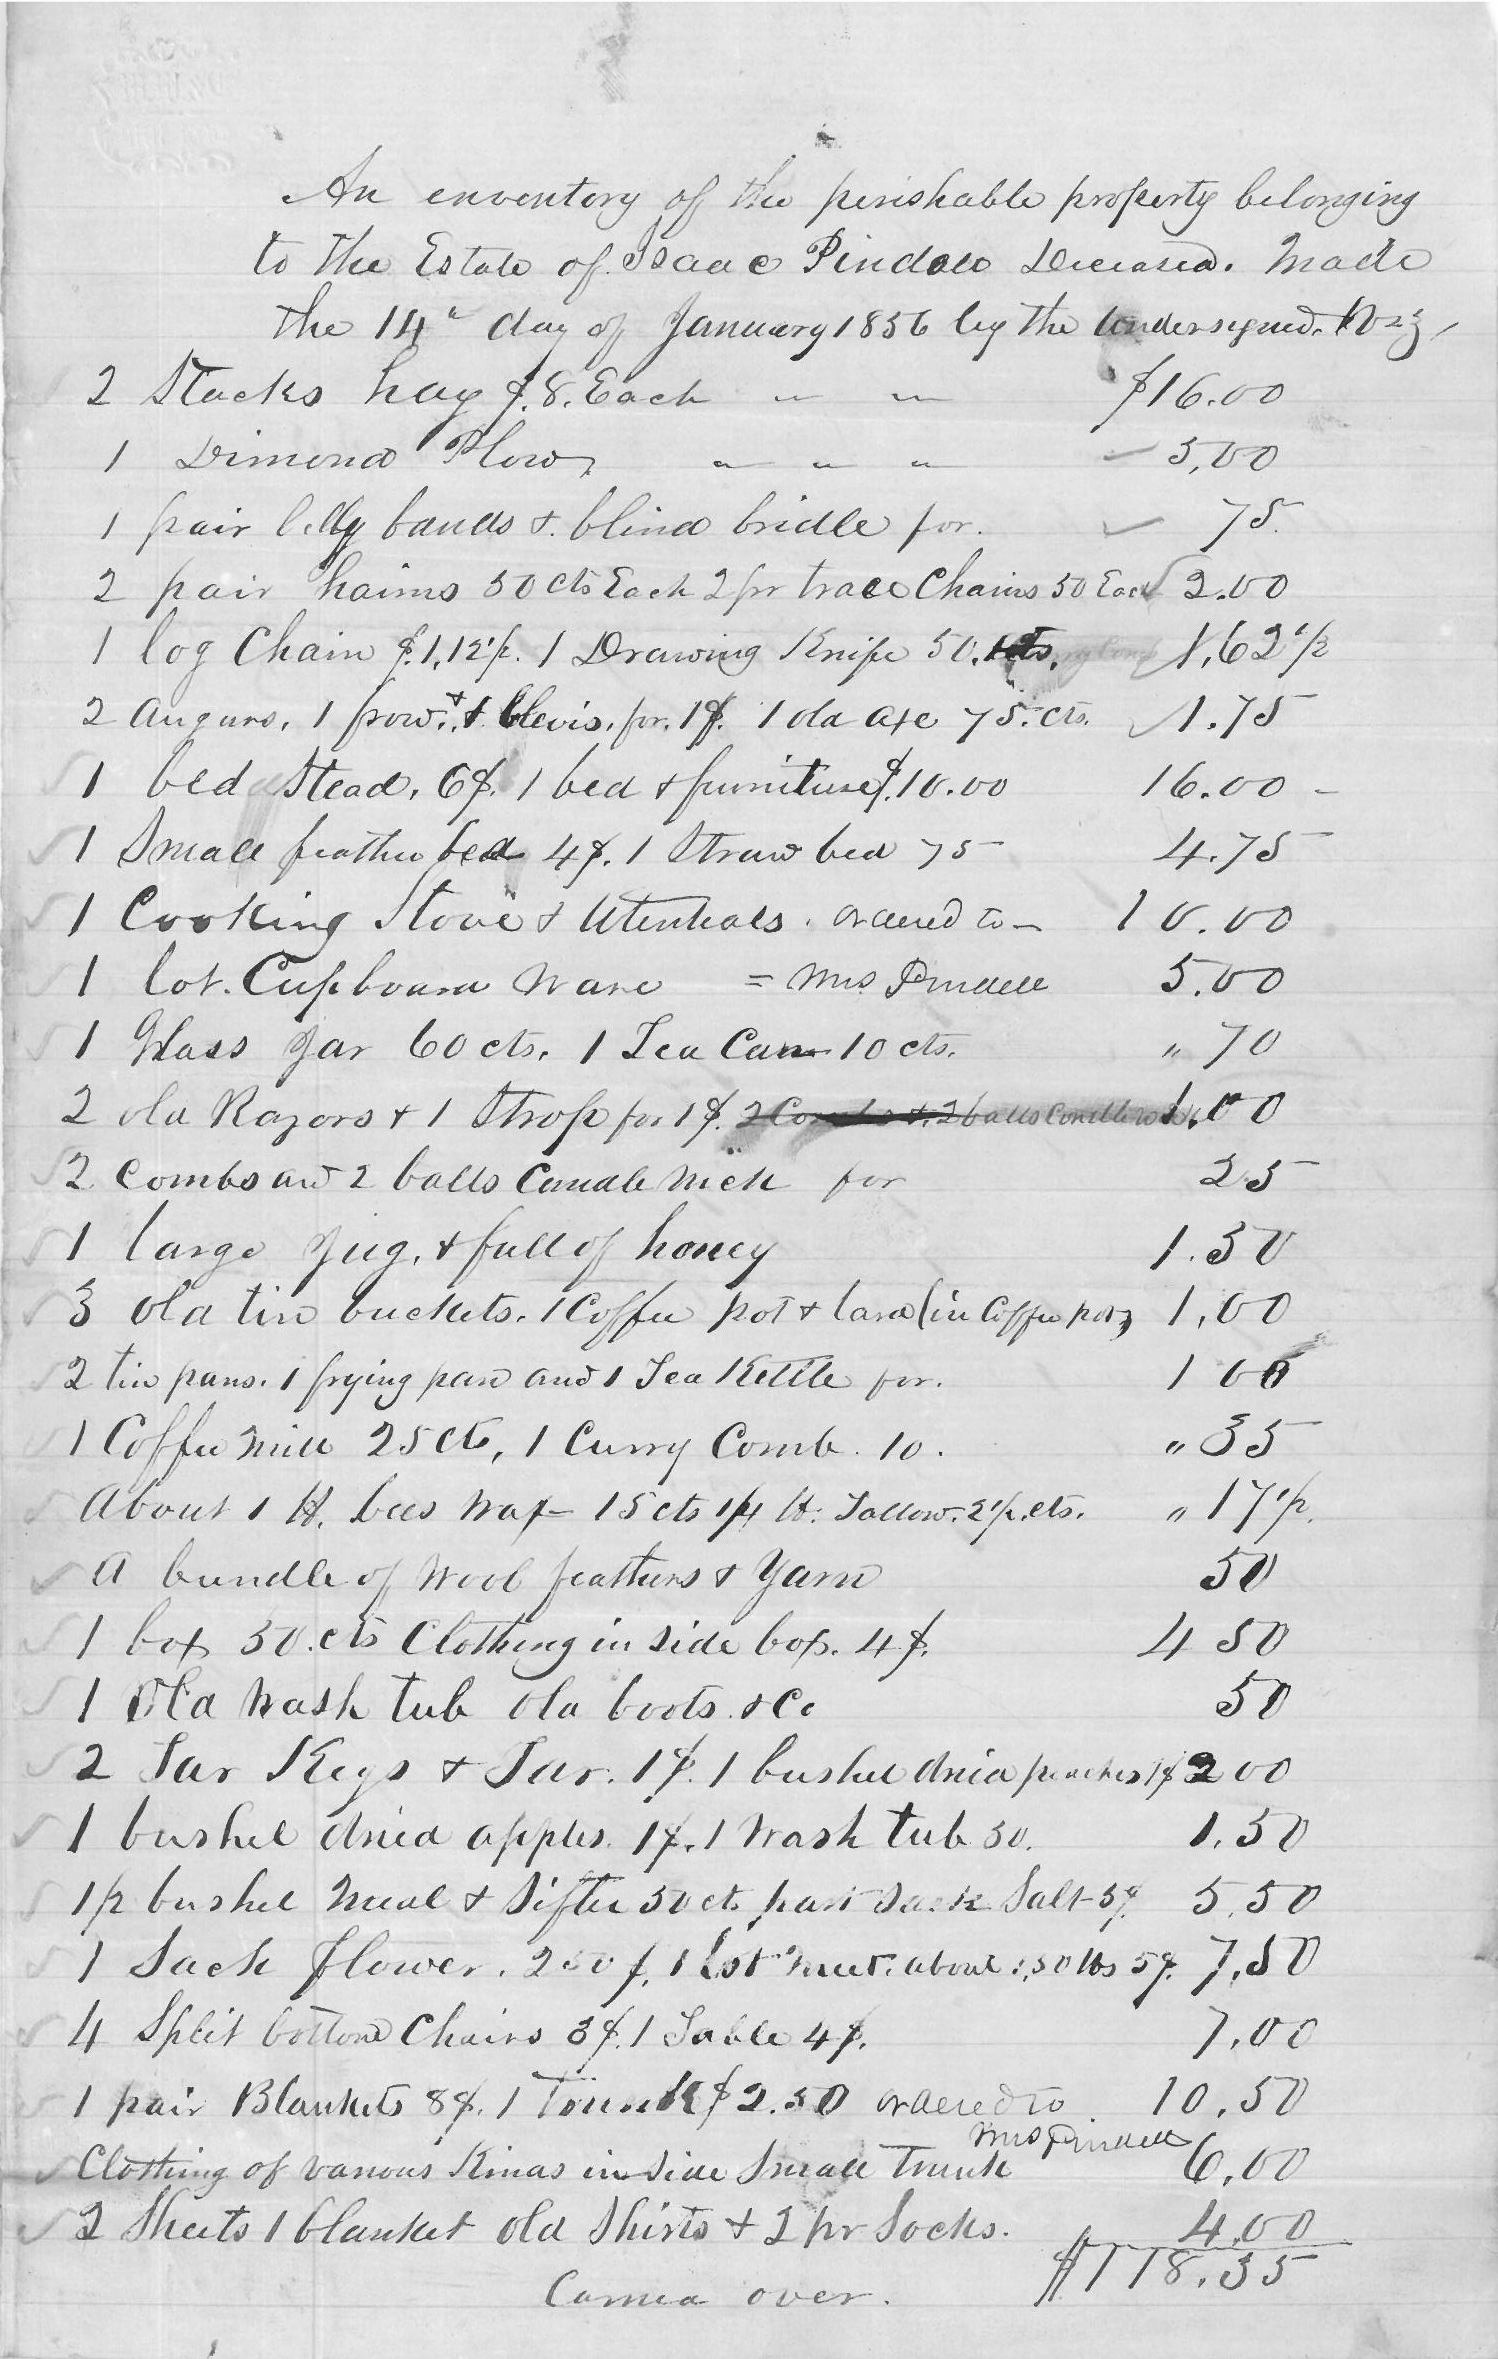 An enventory of the perishable property belonging
to the Estate of Isaac Pindell Deceased. Made
the 14th day of January 1856 by the undersigned. Viz,
2 Stacks hay $.8. Each " " $16.00
1 Dimond Plow, " " " 5,00
1 pair belly bands & blind bridle for. 75
2 pair haims 50 cts Each 2 pr trace Chains 50 Each 2.00
1 log Chain $.1,12 1/2. 1 Drawing Knife 50. cts. 1,62 1/2
2 augurs, 1 frow. & 1 Clevis. for. 1$. 1 old axe 75. cts. 1.75
1 bed Stead, 6$. 1 bed & furniture $.10.00 16.00 -
1 Small feather bed 4$. 1 Straw bed 75 4.75
1 Cooking Stove & Utentials. ordered to - 10.00
1 lot. Cupboard Ware = Mrs Pindell 5.00
1 Glass Jar 60 cts. 1 Tea Can 10 cts. " 70
2 old Razors & 1 Strop for 1$. 2 Combs & 2 balls Candle wick 1.00
2 Combs and 2 balls Candle wick for 25
1 large Jug, & full of honey 1.50
3 old tin buckets. 1 Coffee pot & lard (in Coffee pot) 1,00
2 tin pans. 1 frying pan and 1 Tea Kettle for. 1 00
1 Coffee mill 25 cts, 1 Curry Comb. 10. " 35
About 1 lb. bees wax - 15 cts 1/4 lb. Tallow. 2 1/2. cts. " 17 1/2.
A bundle of Wool feathers & Yarn 50
1 box 50. cts Clothing in side box. 4$. 4 50
1 Old Wash tub old boots. & Co 50
2 Tar Kegs & Tar. 1$. 1 bushel dried peaches 1$ 2 00
1 bushel dried apples. 1$. 1 Wash tub 50. 1.50
1/2 bushel Meal & Sifter 50 ct. part Sack Salt 5$ 5.50
1 Sack flower. 2 50 $, 1 lot Meet. about 50 lbs 5$. 7.50
4 Split bottom Chairs 3$. 1 Table 4$. 7.00
1 pair Blankets 8$. 1 Trunk $2.50 ordered to 10.50
Mrs Pindell
Clothing of various Kinds in side Small Trunk 6.00
2 Sheets 1 blanket old Shirts & 2 pr Socks. 4.00
Carried over. $118.35